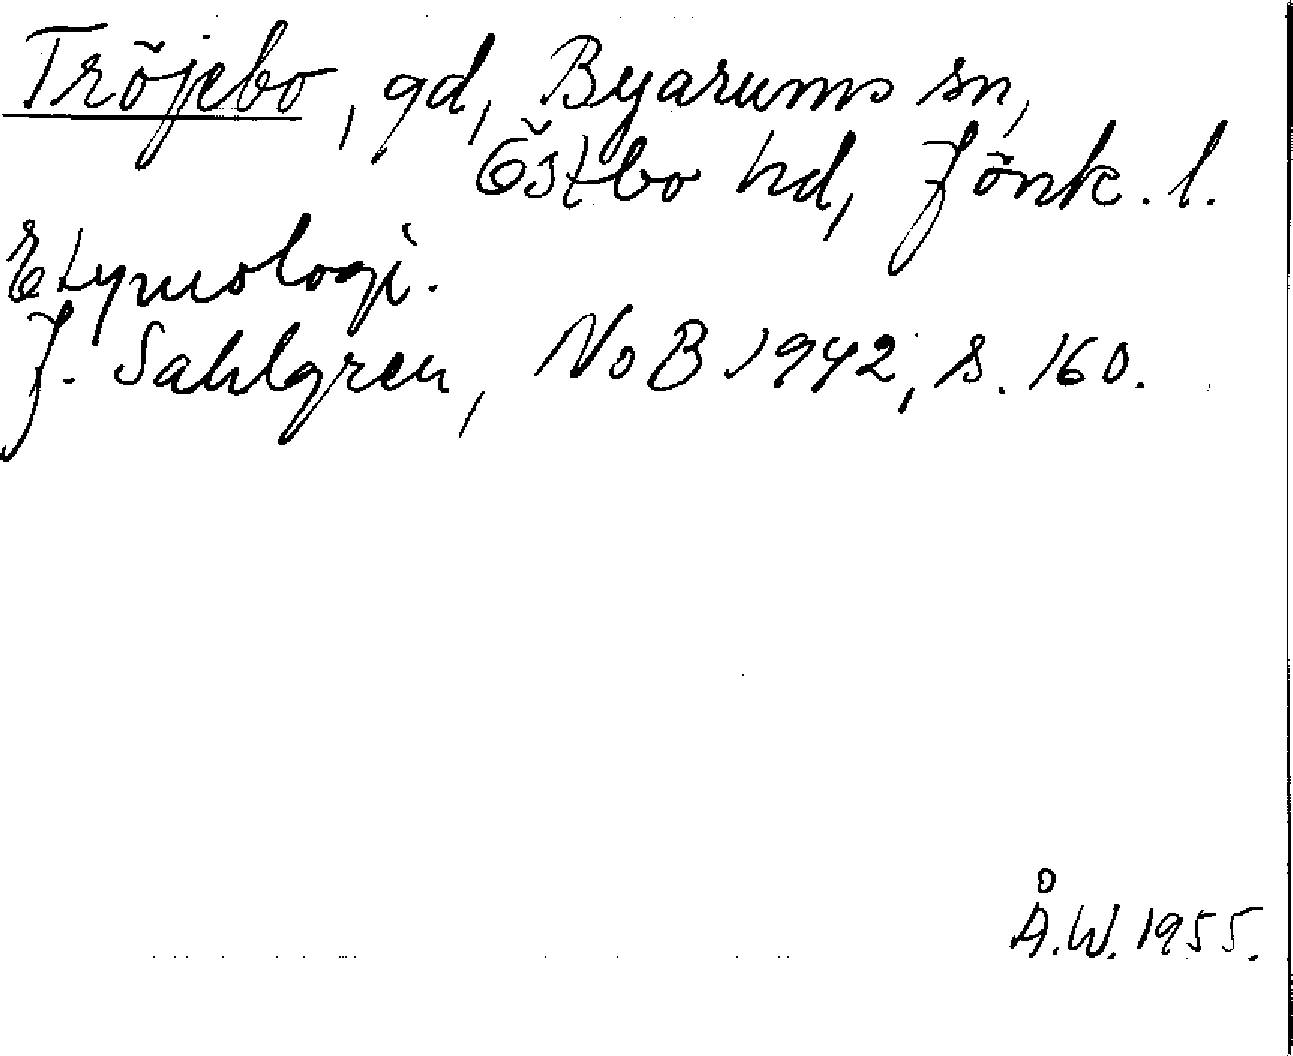 Tröjebo, gd, Byarums sn,
Östbo hd, Jönk. l.
Etymologi.
J. Sahlgren, NoB 1942, s. 160.
Å.W. 1955.